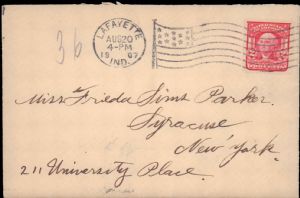 3b
LAFAYETTE
AUG 20
4-PM
19
IND.
Miss Frieda Sims Parker.
Syracuse
New York.
211 University Place.